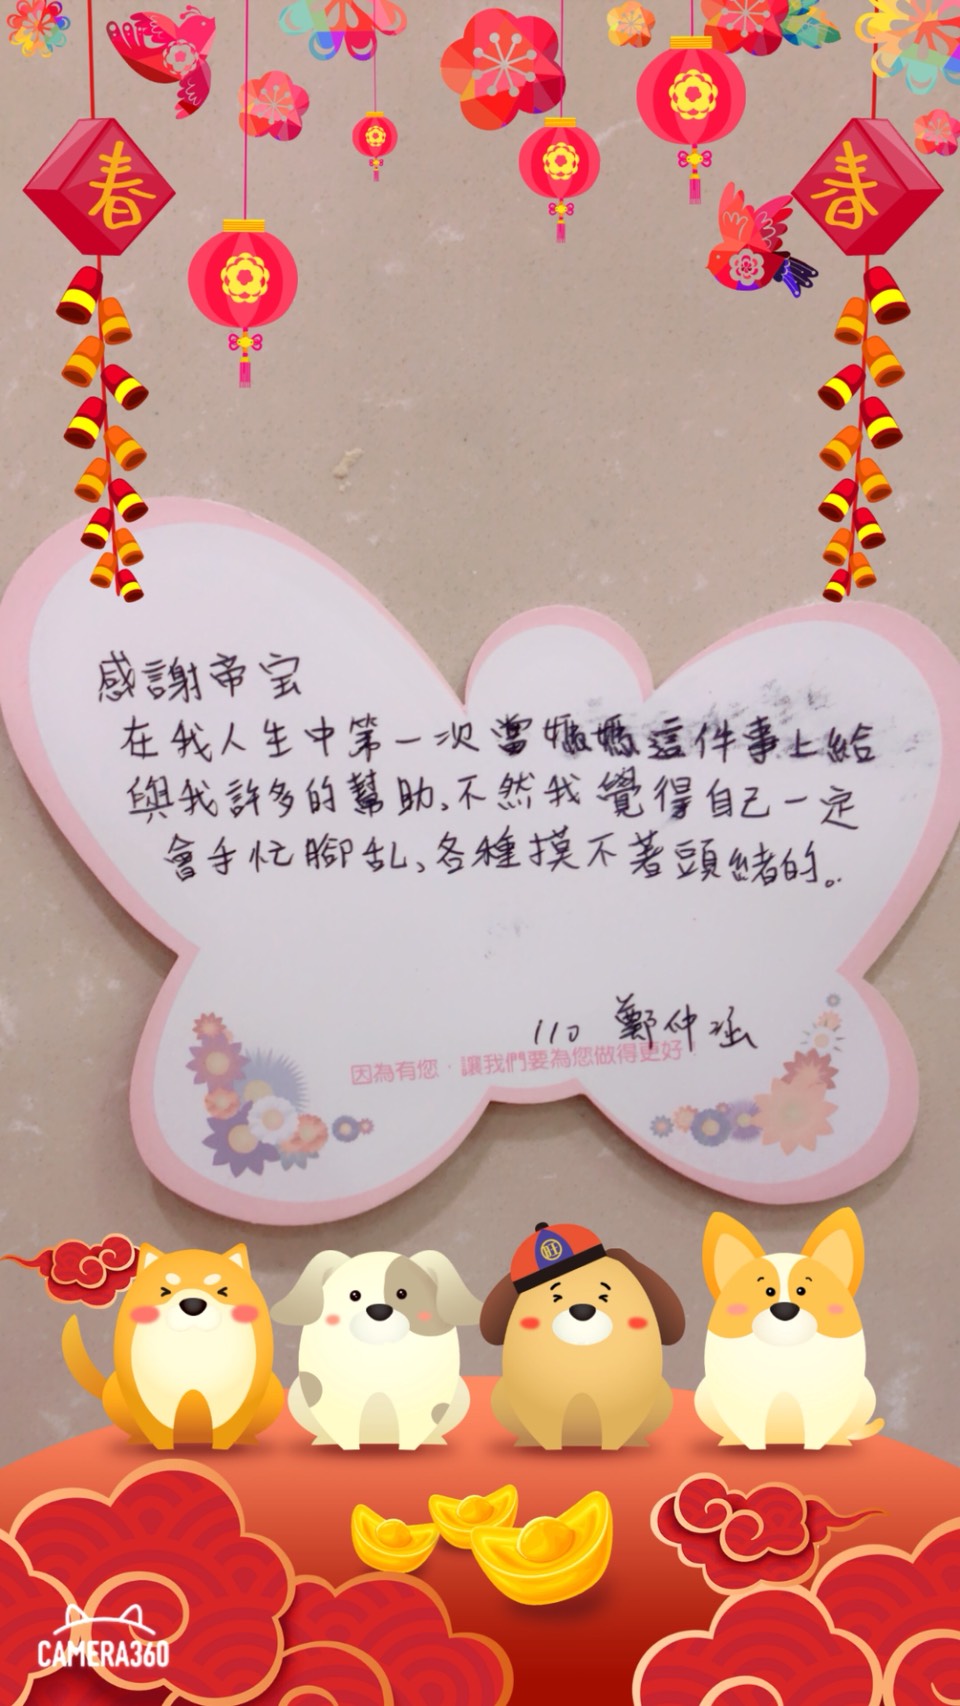 春
春
感謝帝宝
在我人生中第一次當媽媽這件事上給
與我許多的幫助、不然我覺得自己一定
會手忙腳乱、各種摸不著頭緒的。
110 鄭仲涵
因為有您，讓我們要為您做得更好
旺
CAMERA360